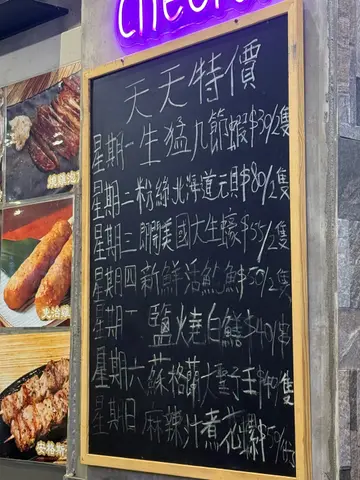 CHEUNG
天天特價
星期一生猛九節蝦$39/2隻
星期二粉絲北海道元貝$80/2隻
星期三即開美國大生蠔$55/2隻
星期四新鮮活鮑魚$50/2隻
星期 鹽燒白鱔$40/串
星期六蘇格蘭大聖子王$40/隻
星期日麻辣汁煮花螺$50/